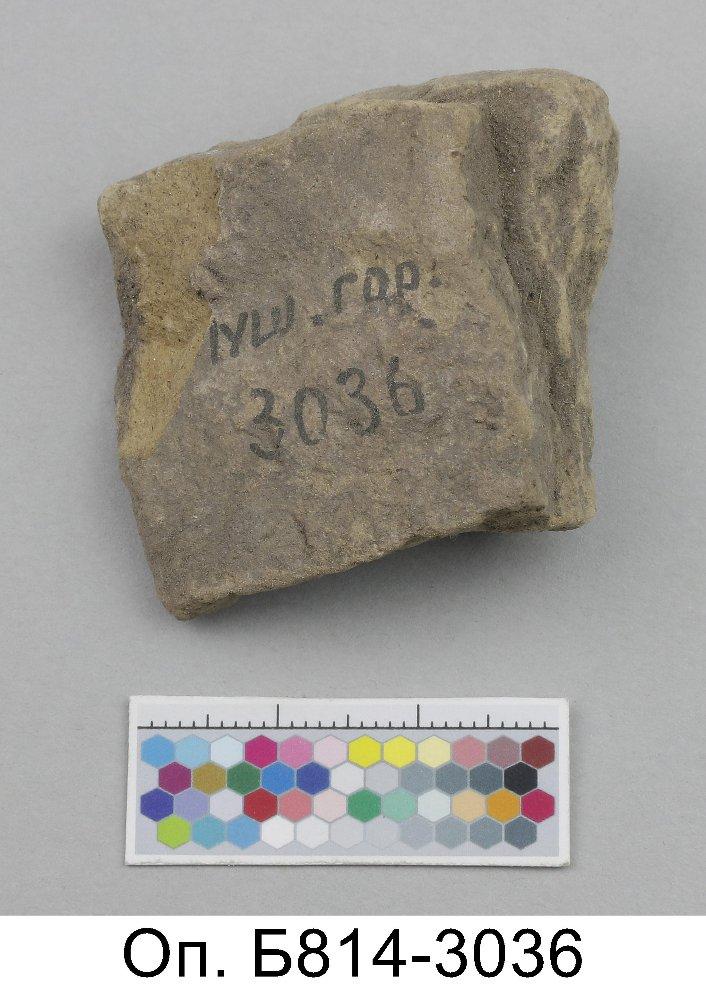 ПУШ. ГОР.
3036
Оп. Б814-3036